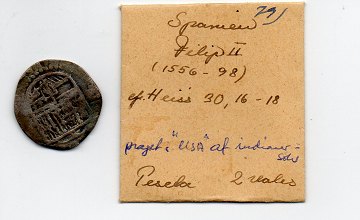 Spanien 79)
Filip II
(1556-98)
cf. Heiss 30, 16-18
præget i "USA" af indianer-
sølv
Peseta 2 reales